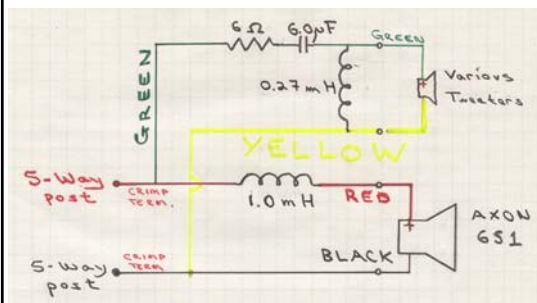 6 Ω 6.0µF GREEN
0.27 mH
Various
Tweeters
GREEN
YELLOW
5-Way
post
CRIMP
TERM.
1.0 mH
RED
AXON
6S1
BLACK
CRIMP
TERM
5-way
post